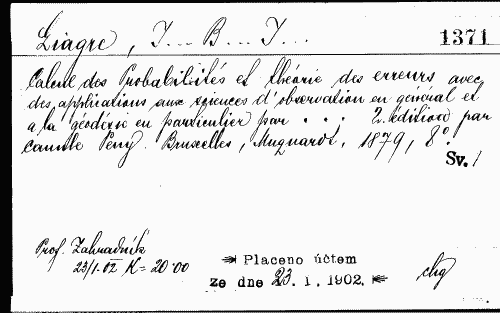 Liagre, J... B... J...
1371
Calcul des Probabilités et théorie des erreurs avec
des applications aux sciences d'observation en général et
a la géodésie en particulier par . . . 2. édition par
Camille Peny. Bruxelles, Muquardt, 1879, 8°.
Sv. 1
Prof. Zahradník
23/1-02 K = 20·00
Placeno účtem
ze dne 23. I. 1902.